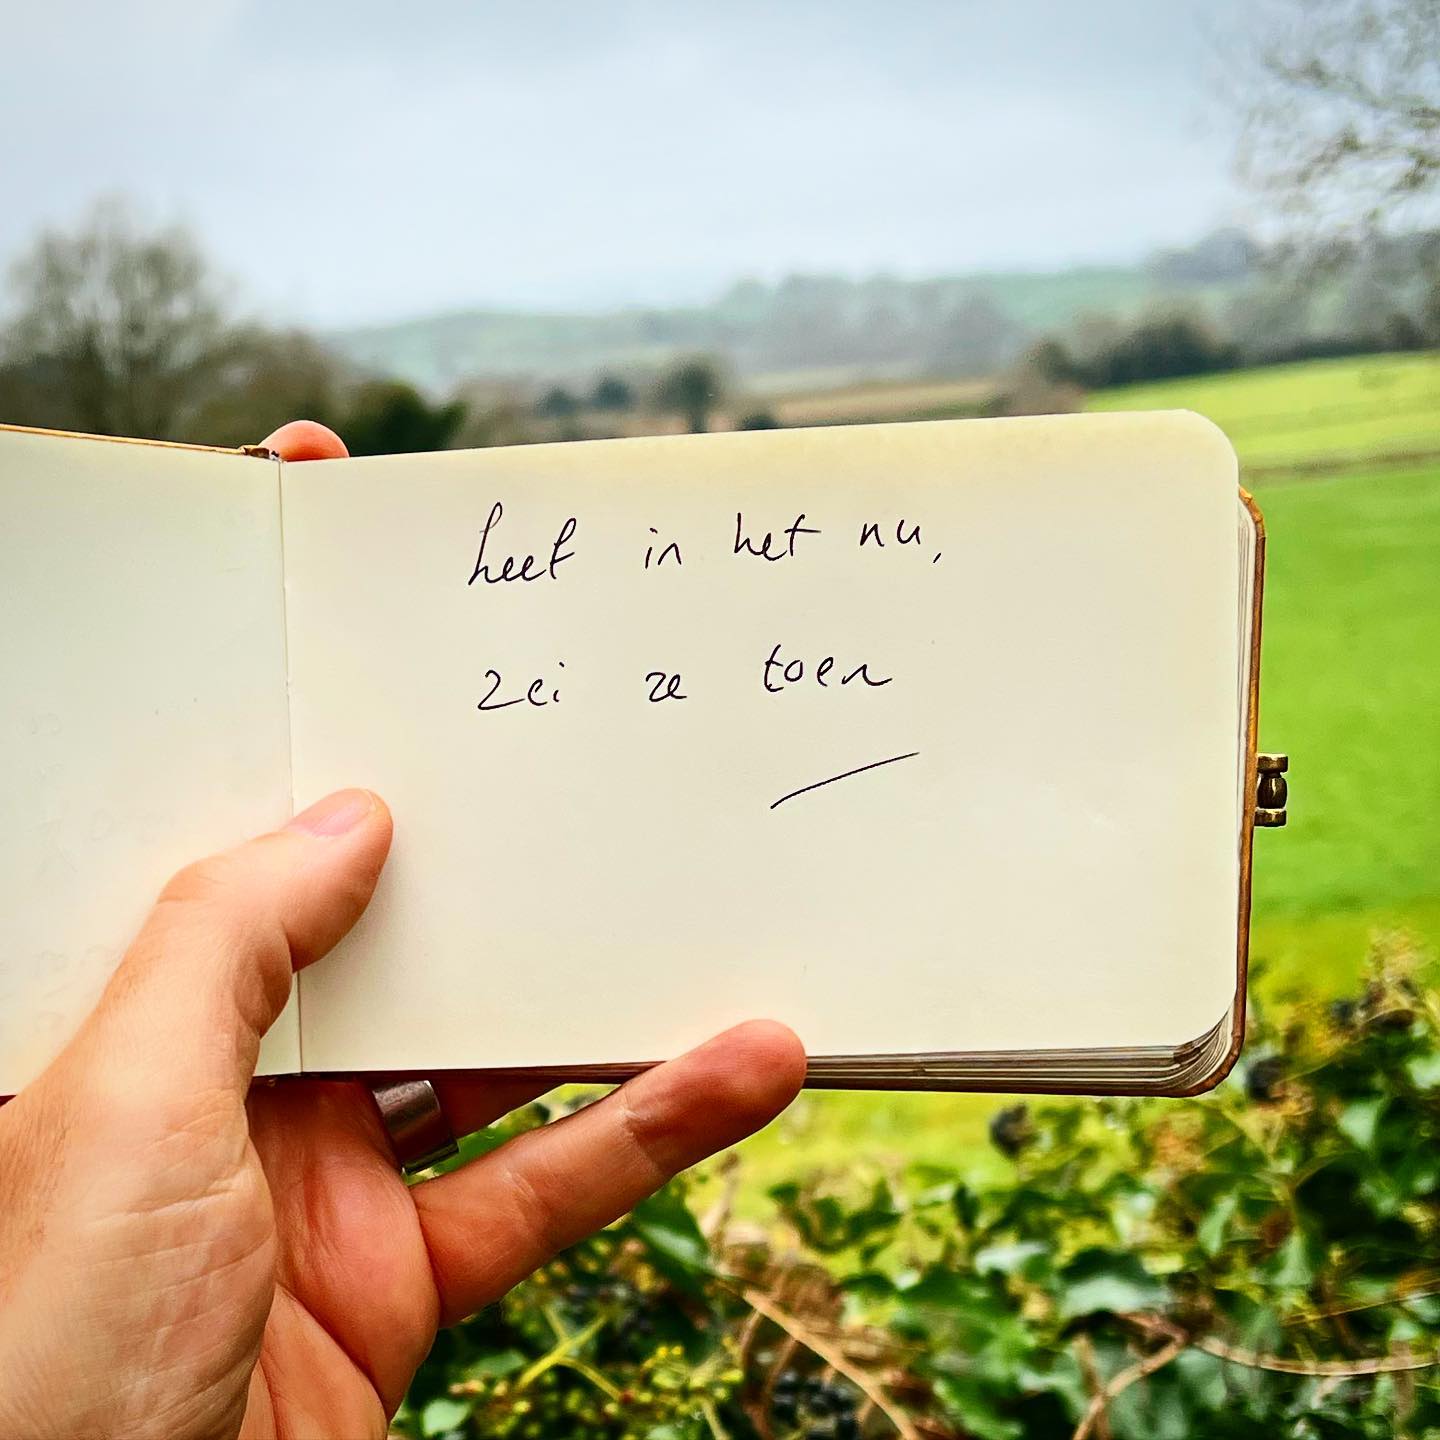 leef in het nu,
zei ze toen